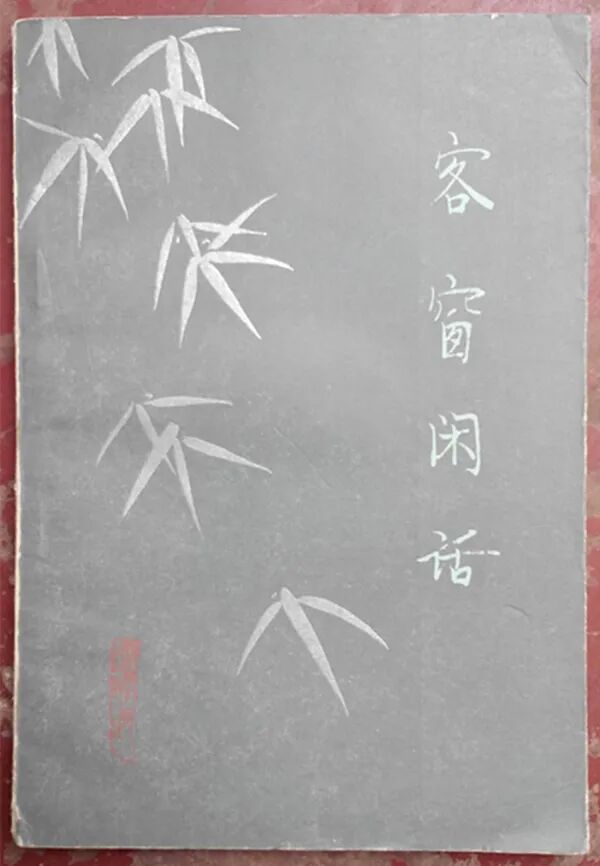 客窗闲话